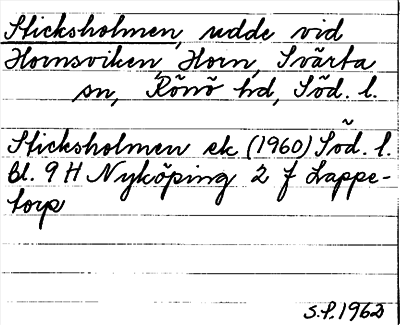 Sticksholmen, udde vid
Hornsviken, Horn, Svärta
sn, Rönö hd, Söd. l.
Sticksholmen ek (1960) Söd. l.
Bl. 9 H Nyköping 2 f Lappe-
torp
S.P. 1962